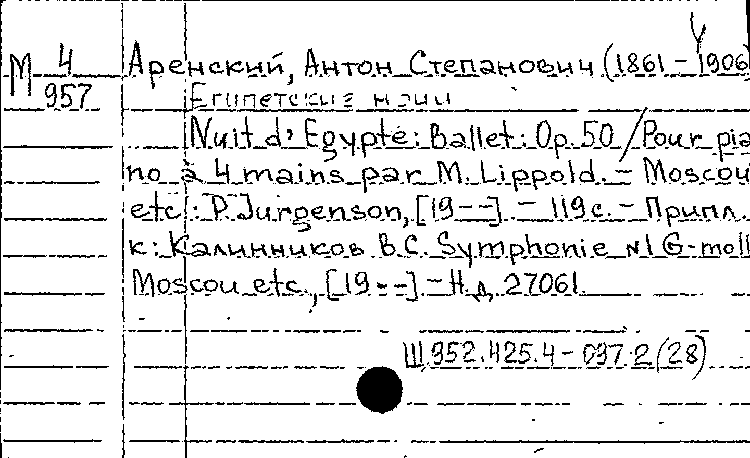 У
М 4 Аренский, Антон Степанович (1861 – 1906
957 Египетские ночи
Nuit d'Egypte: Ballet: Op. 50 / Pour pia
no à 4 mains par M. Lippold. – Moscou
etc: P. Jurgenson, [19--]. – 119 с. – Припл.
к: Калинников В.С. Symphonie №1 G-moll
Moscou etc., [19--] – Н.д. 27061.
Щ 952.425.4 – 097.2 (28)